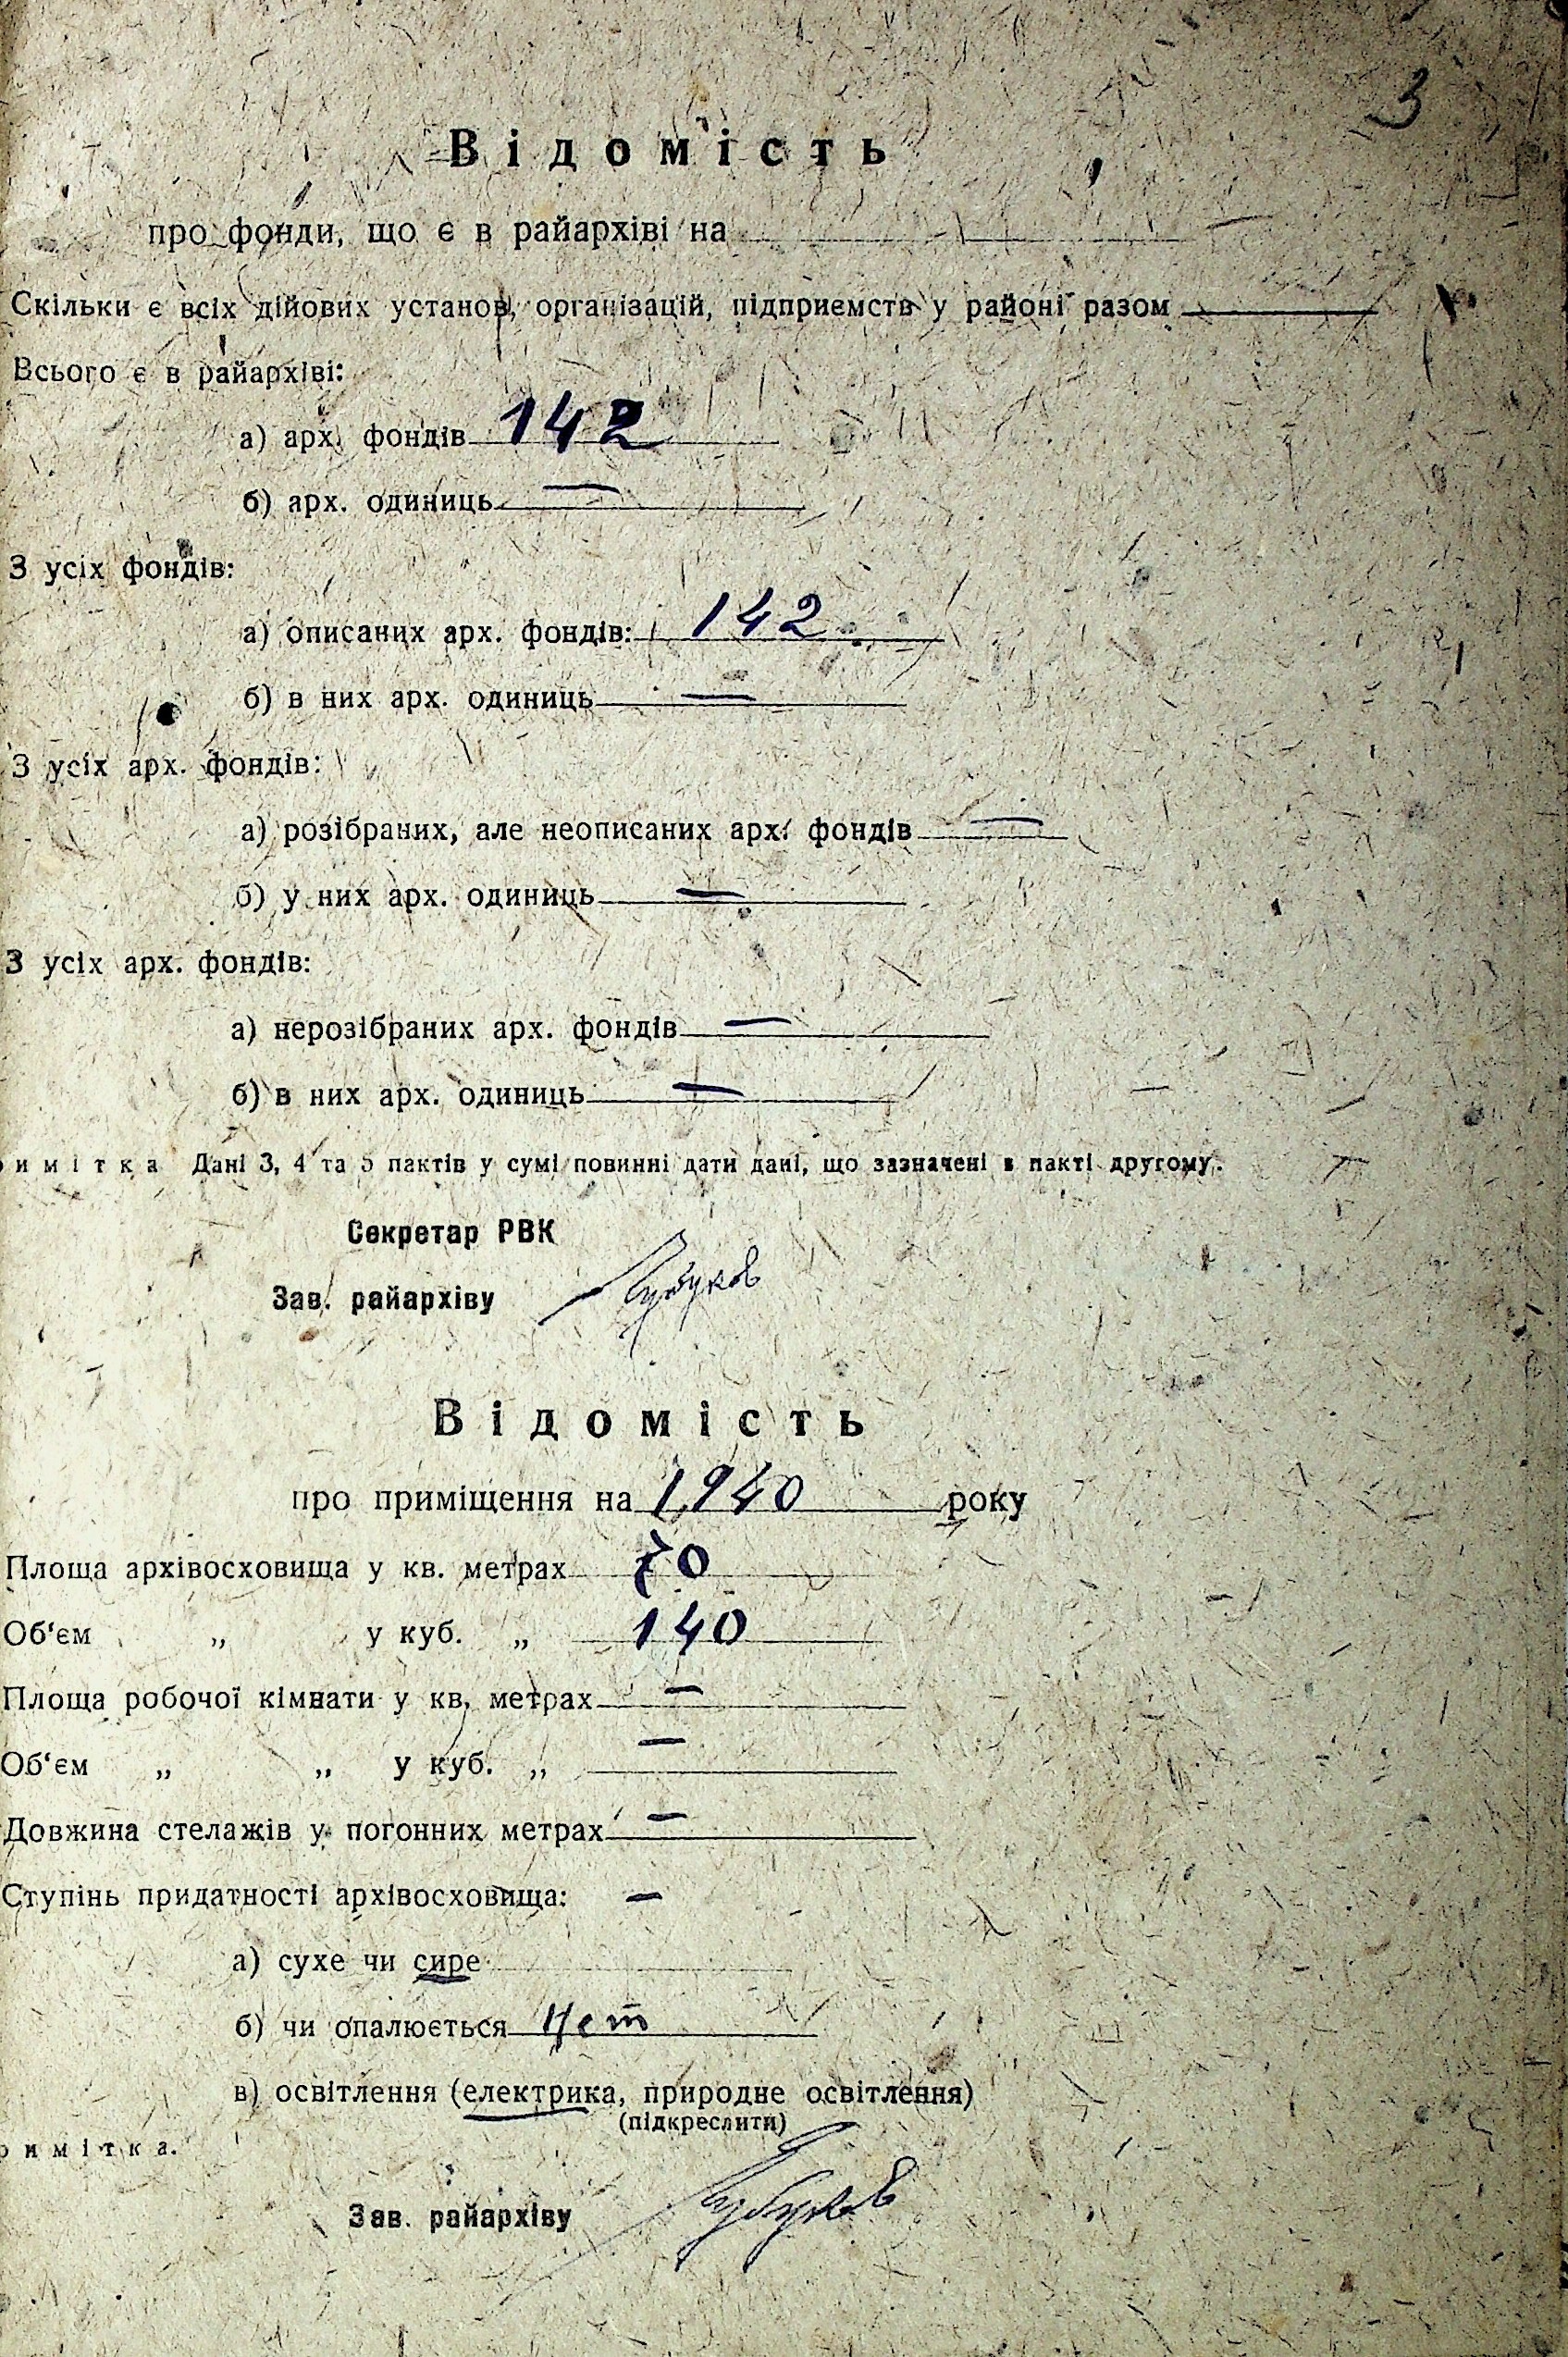 3
Відомість
про фонди, що є в райархіві на
Скільки є всіх дійових установ, організацій, підприємств у районі разом —
Всього є в райархіві:
а) арх. фондів 142
б) арх. одиниць —
З усіх фондів:
а) описаних арх. фондів: 142
б) в них арх. одиниць —
З усіх арх. фондів:
а) розібраних, але неописаних арх. фондів —
б) у них арх. одиниць —
З усіх арх. фондів:
а) нерозібраних арх. фондів —
б) в них арх. одиниць —
имітка Дані 3, 4 та 5 пактів у сумі повинні дати дані, що зазначені в пакті другому.
Секретар РВК
Зав. райархіву
Відомість
про приміщення на 1940 року
Площа архівосховища у кв. метрах 70
Об'єм „ у куб. „ 140
Площа робочої кімнати у кв. метрах —
Об'єм „ „ у куб. „ —
Довжина стелажів у погонних метрах —
Ступінь придатності архівосховища: —
а) сухе чи сире
б) чи опалюється Нет
в) освітлення (електрика, природне освітлення)
(підкреслити)
имітка.
Зав. райархіву